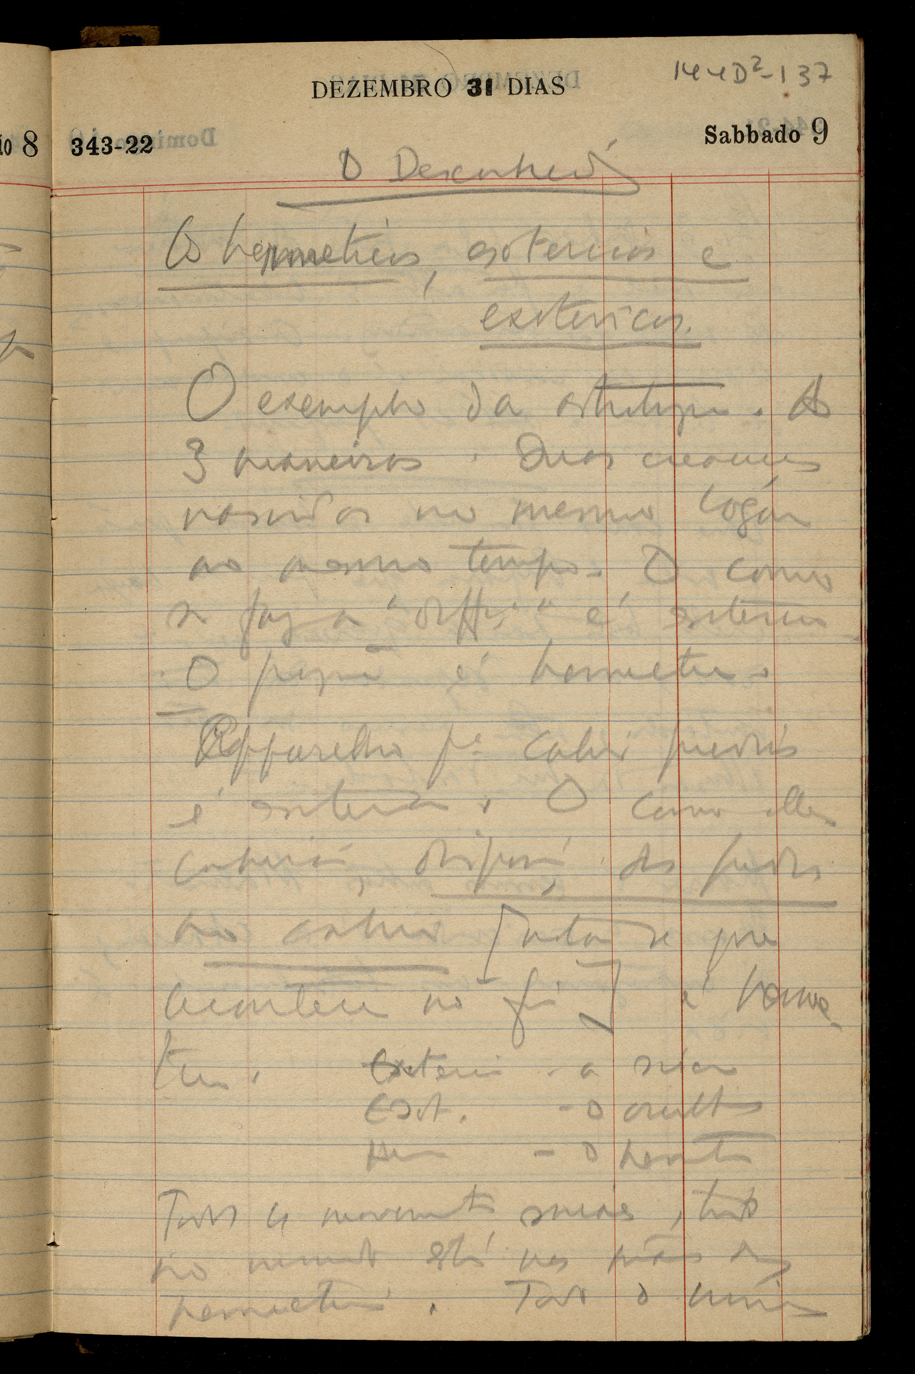 DEZEMBRO 31 DIAS
144D²-137
io 8
343-22
Sabbado 9
O Desconhecido
Os hermeticos, esotericos e
exotericos.
O exemplo da As
3 maneiras. Duas creanças
nascidas no mesmo logar
ao mesmo tempo. O como
se faz a "diff." é esoterico
O porquê é hermetico.
Apparelho pª cahir pedras
é esoterico. O como elles
as pedras
ao cahir [ se que
acontece no fim] é herme-
tico. Exoterico - a
Esot. - o occulto
Her - o hermetico
Todos os movimentos sociaes, tudo
no mundo está nas mãos dos
hermeticos. Todo o